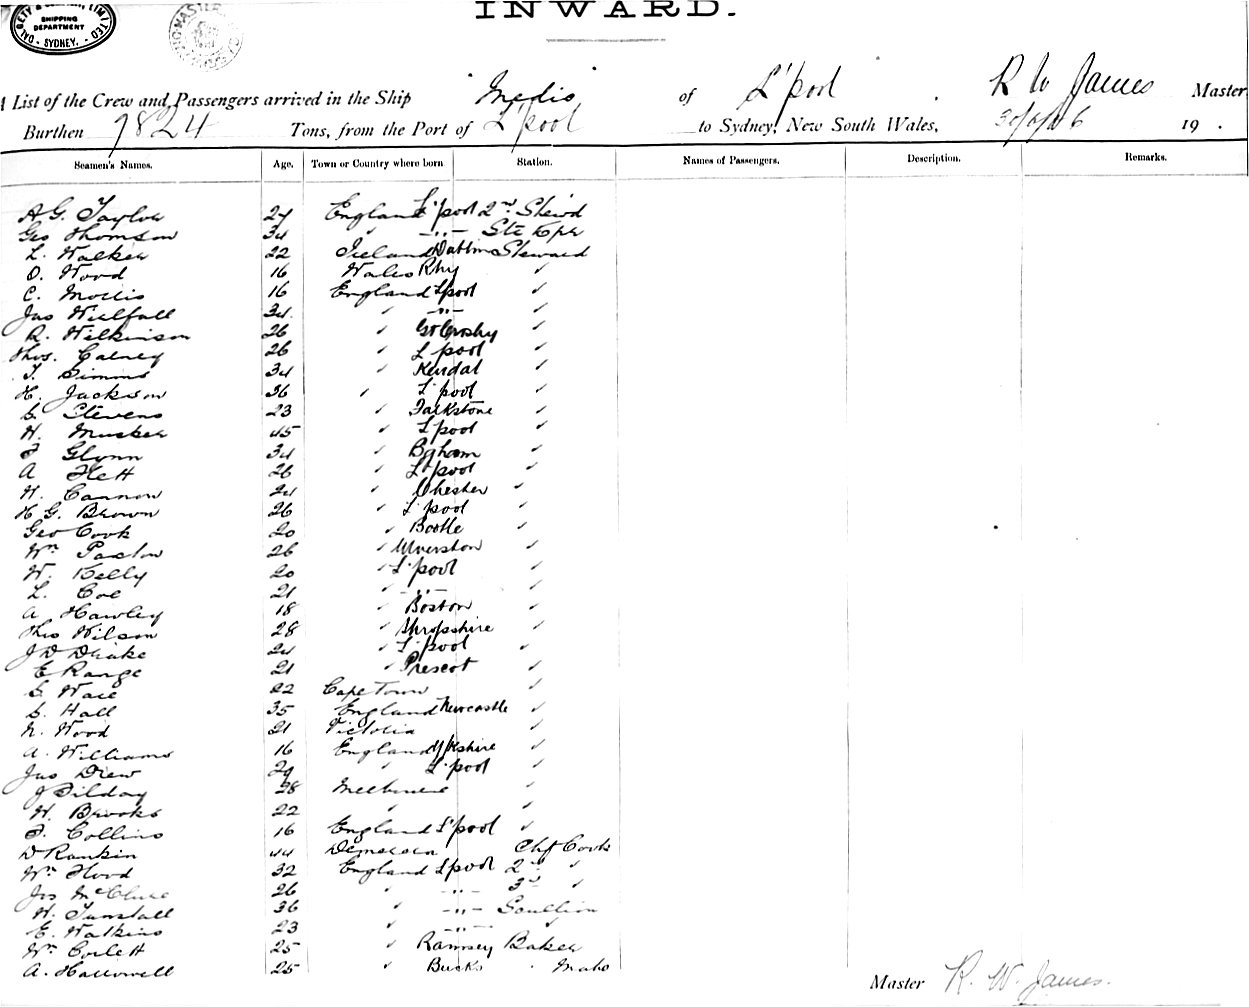 DALGETY & COMPANY LIMITED
SHIPPING
DEPARTMENT
SYDNEY.
INWARD.
List of the Crew and Passengers arrived in the Ship "Medic" of L'pool R W James Master
Burthen 7824 Tons, from the Port of L'pool to Sydney, New South Wales, 19 .
Seamen's Names. Age. Town or Country where born Station. Names of Passengers. Description. Remarks.
A G. Taylor 24 England L'pool 2nd Stewd
Geo Thomson 34 " -"- Ste kpr
L. Walker 22 Ireland Dublin Steward
O. Wood 16 Wales Rhy ✓
C. Mollis 16 England L'pool ✓
Jas Wulfall 34 ✓ -"- ✓
R. Wilkinson 26 ✓ Gt Crosby ✓
Thos. Calney 26 ✓ L'pool ✓
T. Simms 34 ✓ Kendal ✓
H. Jackson 36 ✓ L'pool ✓
S. Stevens 23 ✓ Falkstone ✓
H. Musker 45 ✓ L'pool ✓
F Glynn 34 ✓ Bgham ✓
A Flett 26 ✓ L'pool ✓
H. Cannon 24 ✓ Chester ✓
H G. Brown 26 ✓ L'pool ✓
Geo Cook 20 ✓ Bootle ✓
Wm Paxton 26 ✓ Ulverston ✓
W. Kelly 20 ✓ L'pool ✓
L. Coe 21 ✓ -"- ✓
A Hawley 18 ✓ Boston ✓
Thos Wilson 28 ✓ Shropshire ✓
J D Drake 24 ✓ L'pool ✓
E Range 21 ✓ Prescot ✓
S. Ware 22 Cape Town ✓
S. Hall 35 England Newcastle ✓
N. Wood 21 Victoria ✓
A. Williams 16 England Y'kshire ✓
Jas Drew 29 ✓ L'pool ✓
J Dilday 28 Melbourne ✓
H. Brooks 22 ✓ ✓
F. Collins 16 England L'pool ✓
D Rankin 44 Demerara Chf Cook
Wm Hood 32 England L'pool 2nd "
Jos McClure 26 ✓ -"- 3rd "
H. Tunstall 36 ✓ -"- Scullion
E. Watkins 23 ✓ -"- ✓
Wm Corlett 25 ✓ Ramsey Baker
A. Hallowell 25 ✓ Bucks
Master R. W. James.